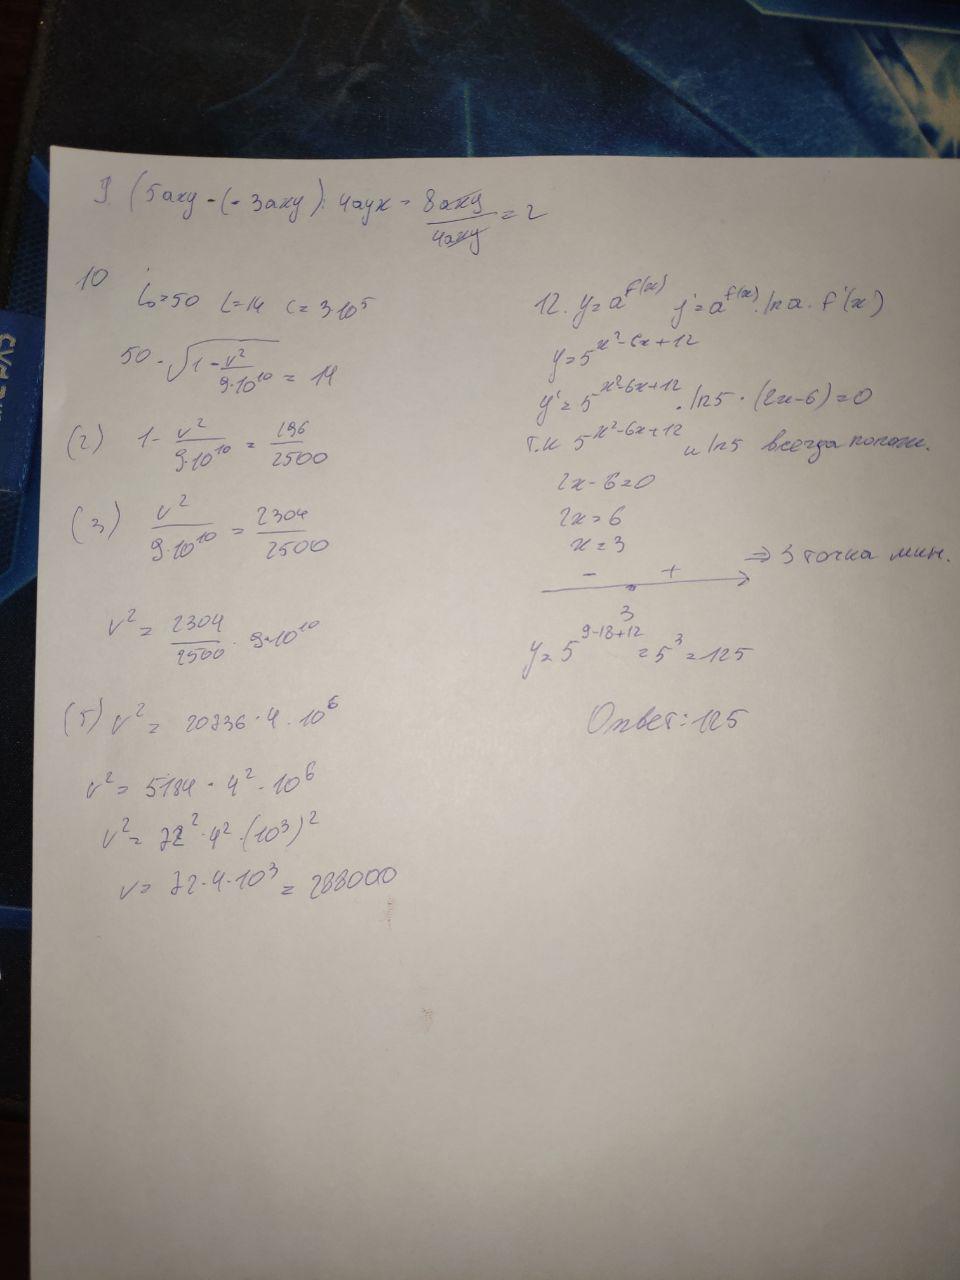 9. (5axy - (-3axy)) : 4ayx = 8axy/4axy = 2
10
l₀=50 l=14 c=3·10⁵
50·√(1-v²/9·10¹⁰) = 14
(2) 1- v²/9·10¹⁰ = 196/2500
(3) v²/9·10¹⁰ = 2304/2500
v² = 2304/2500 · 9·10¹⁰
(5) v² = 20736·4·10⁶
v² = 5184·4²·10⁶
v² = 72²·4²·(10³)²
v = 72·4·10³ = 288000
12. y=a^f(x) y'=a^f(x)·ln a·f'(x)
y=5^x²-6x+12
y'=5^x²-6x+12·ln5·(2x-6)=0
т.к 5^x²-6x+12 и ln5 всегда полож.
2x-6=0
2x=6
x=3
- + ⇒ 3 точка мин.
3
y=5^9-18+12 = 5³ = 125
Ответ: 125